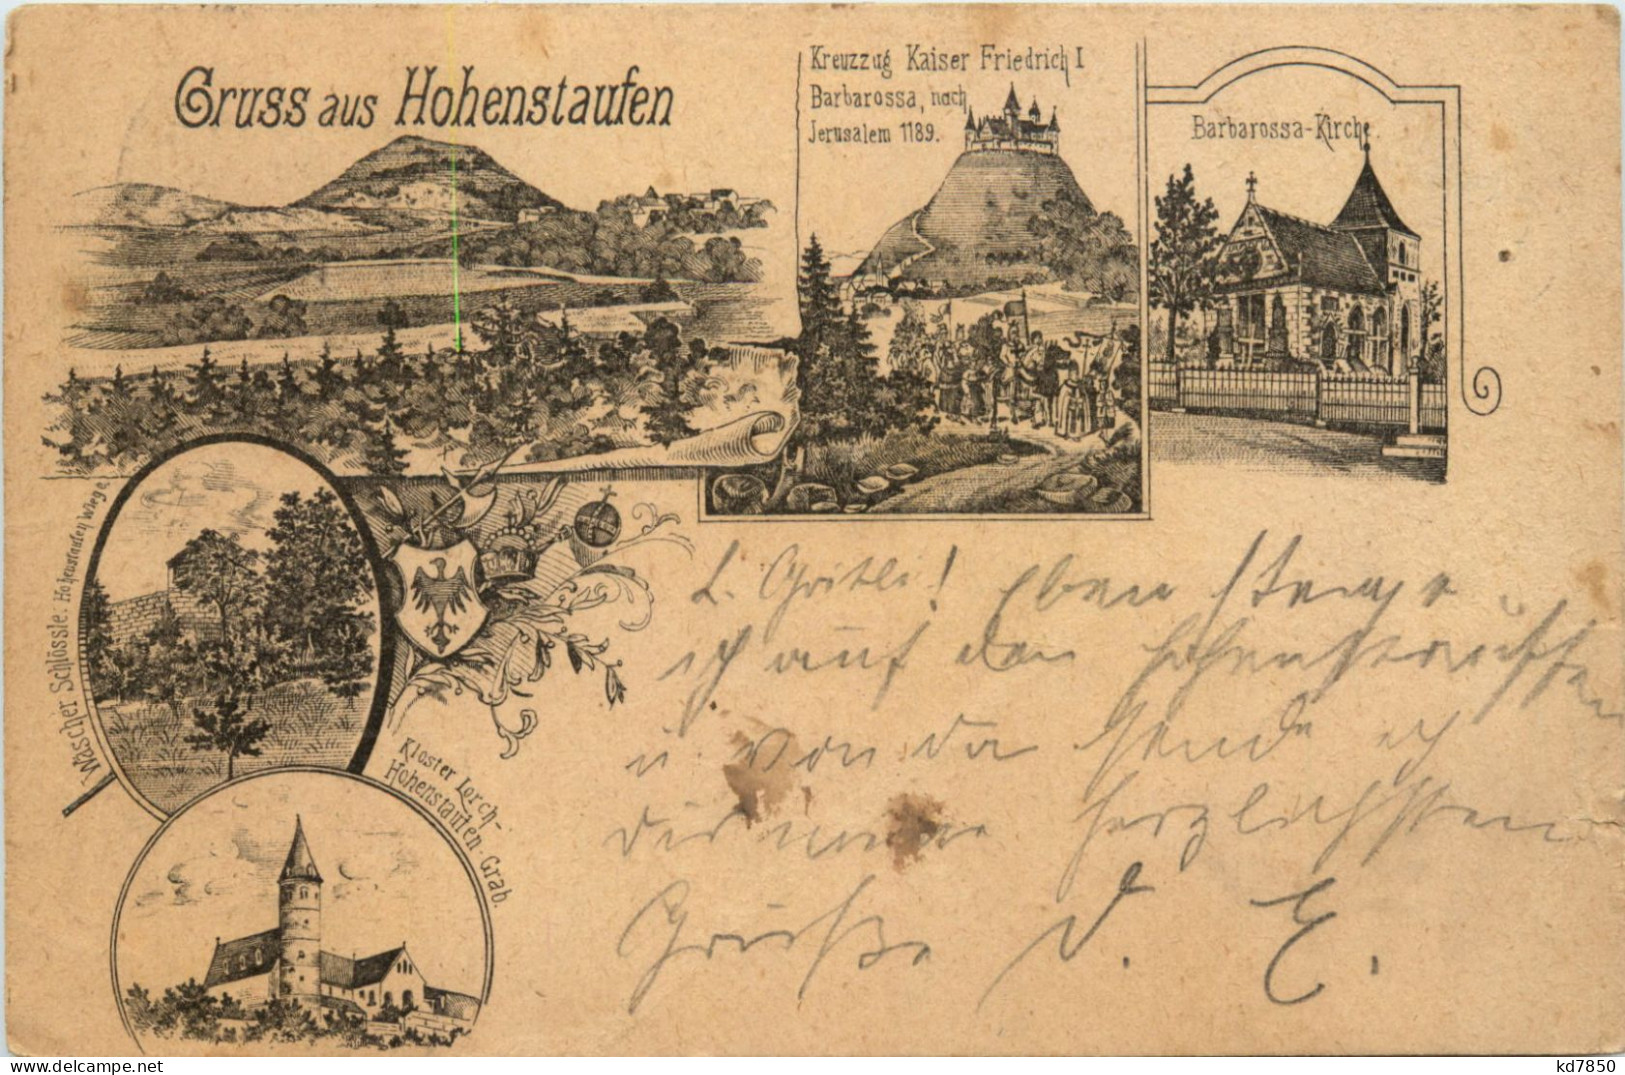 Gruss aus Hohenstaufen
Kreuzzug Kaiser Friedrich I
Barbarossa, nach
Jerusalem 1189.
Barbarossa-Kirche.
Wäscher Schlössle. Hohenstaufen wege.
Kloster Lorch-
Hohenstaufen-Grab.
L. Gritli! Eben steige
ich auf den Hohenstauffen
u. von da sende ich
dir meine herzlichsten
Grüße d. E.
kd7850